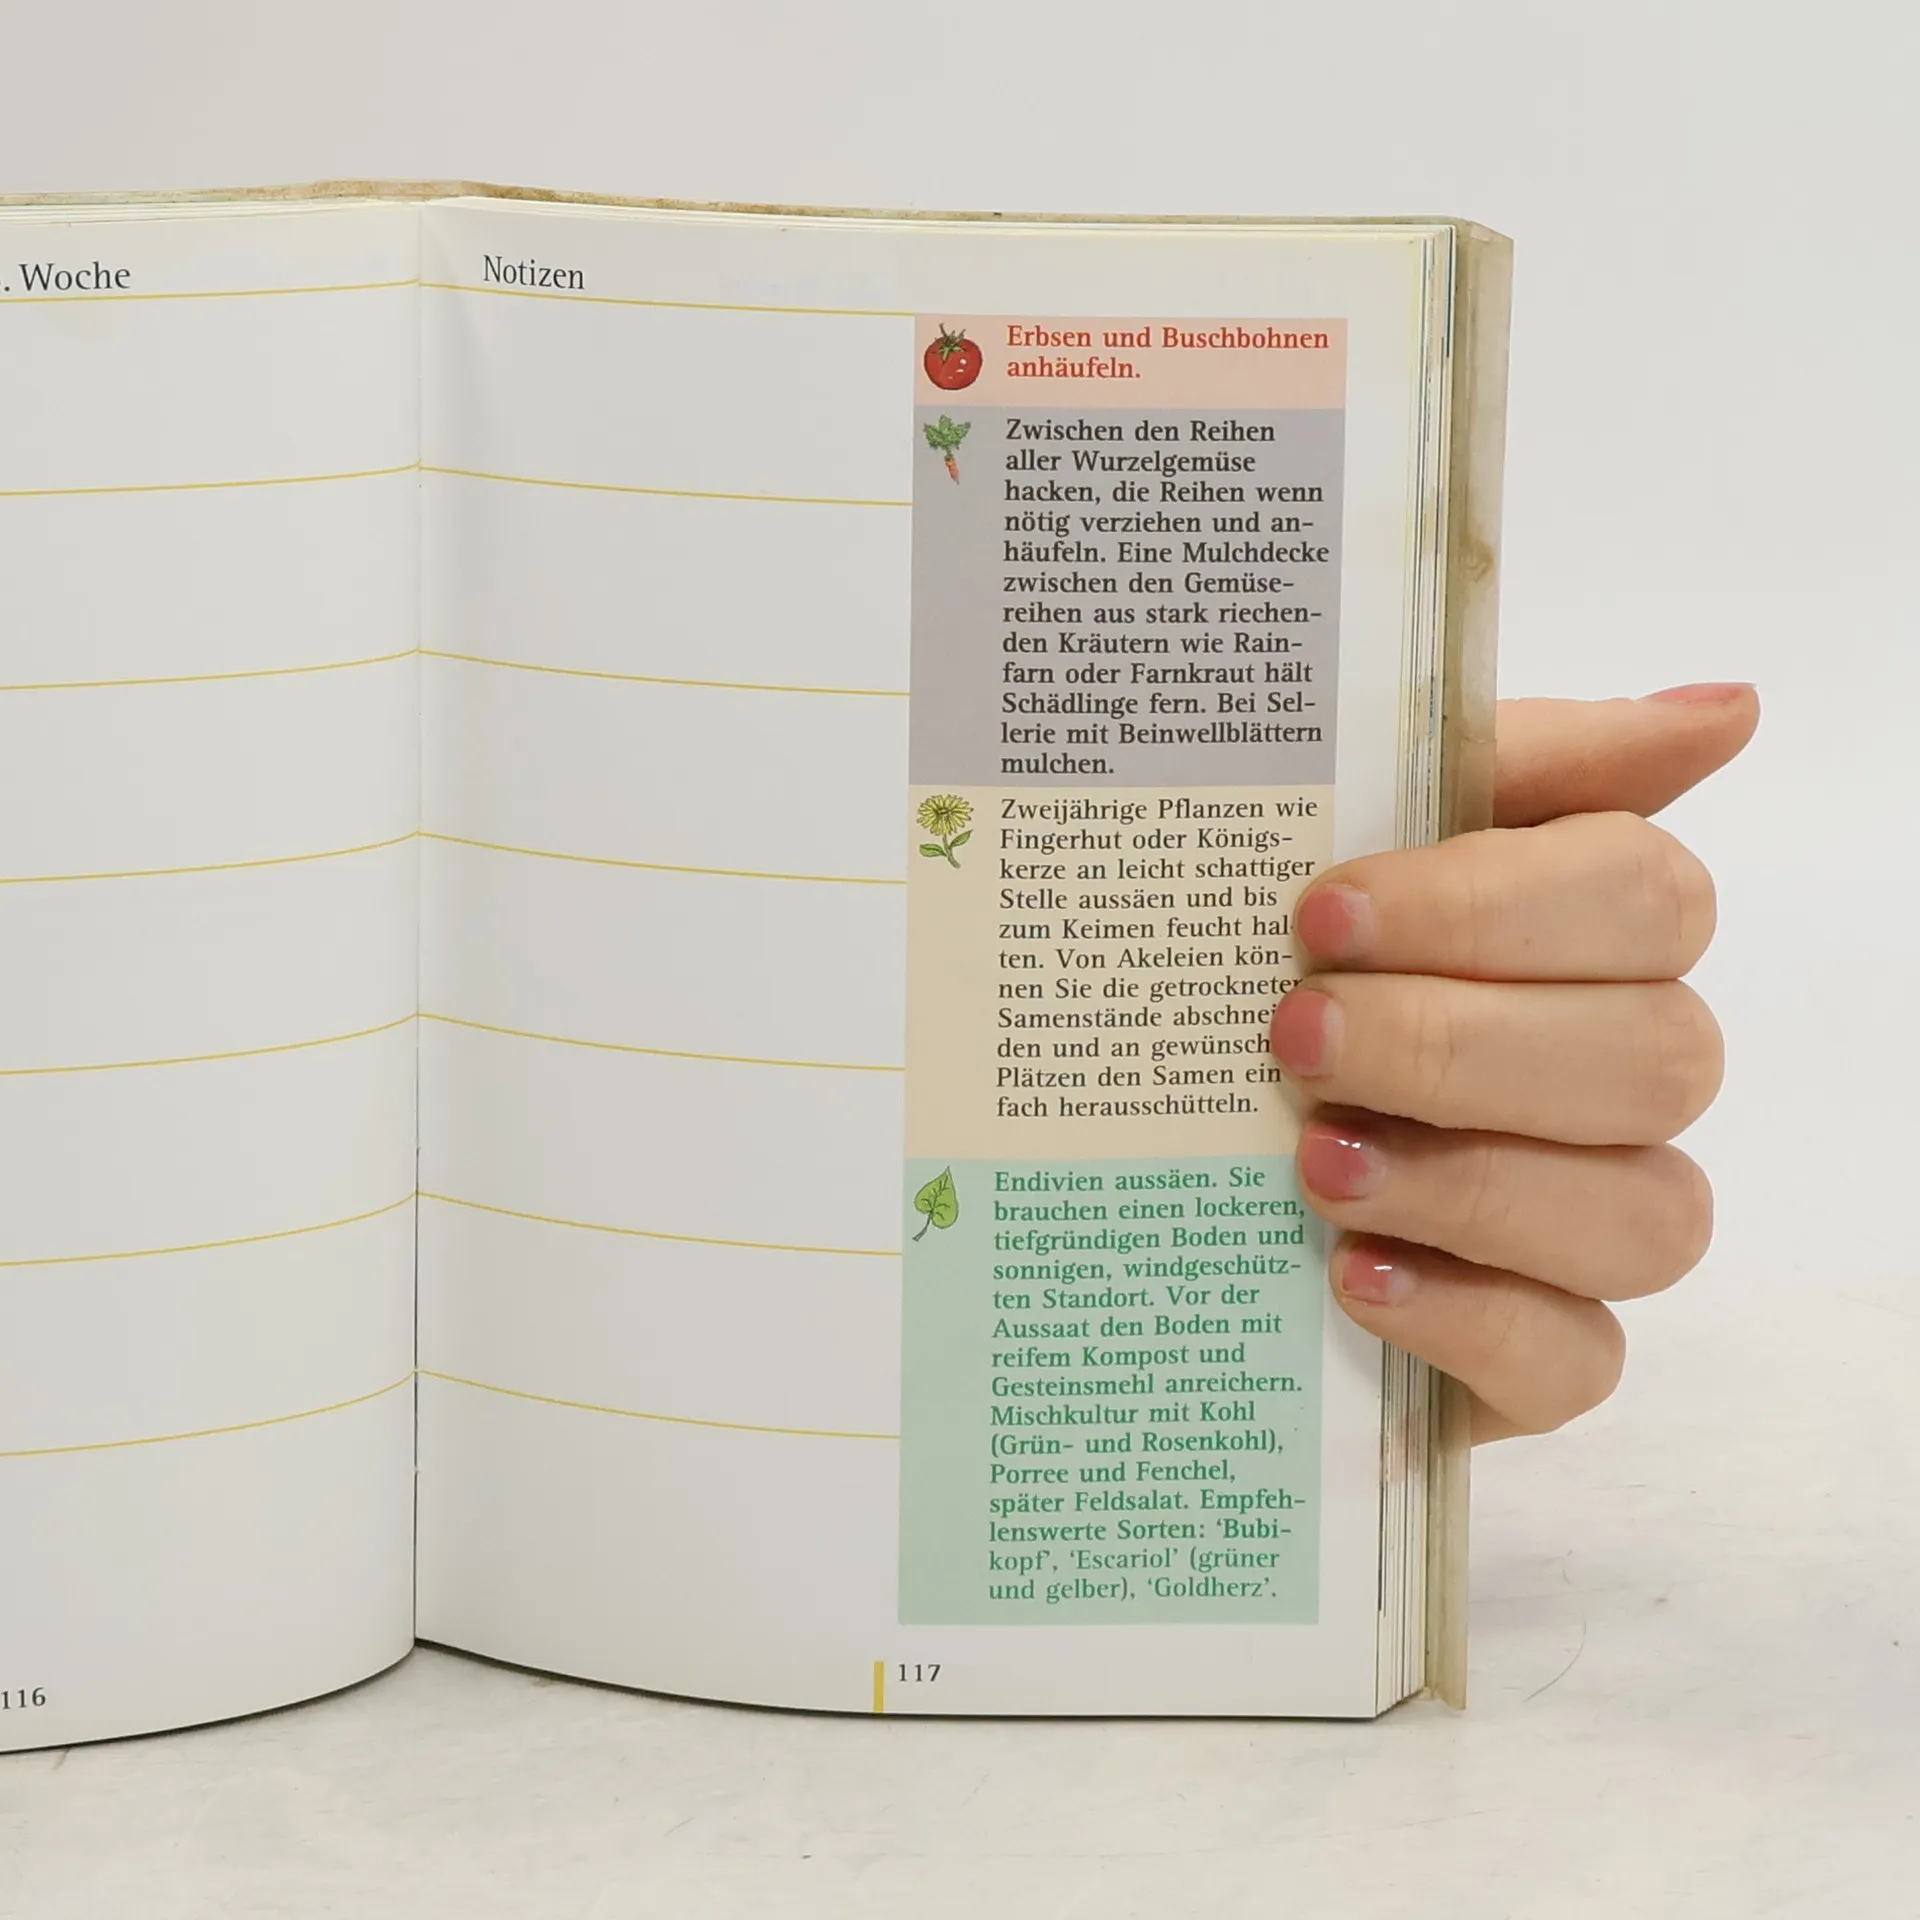 . Woche
116
Notizen
Erbsen und Buschbohnen
anhäufeln.
Zwischen den Reihen
aller Wurzelgemüse
hacken, die Reihen wenn
nötig verziehen und an-
häufeln. Eine Mulchdecke
zwischen den Gemüse-
reihen aus stark riechen-
den Kräutern wie Rain-
farn oder Farnkraut hält
Schädlinge fern. Bei Sel-
lerie mit Beinwellblättern
mulchen.
Zweijährige Pflanzen wie
Fingerhut oder Königs-
kerze an leicht schattiger
Stelle aussäen und bis
zum Keimen feucht hal-
ten. Von Akeleien kön-
nen Sie die getrockneten
Samenstände abschnei
den und an gewünsch
Plätzen den Samen ein
fach herausschütteln.
Endivien aussäen. Sie
brauchen einen lockeren,
tiefgründigen Boden und
sonnigen, windgeschütz-
ten Standort. Vor der
Aussaat den Boden mit
reifem Kompost und
Gesteinsmehl anreichern.
Mischkultur mit Kohl
(Grün- und Rosenkohl),
Porree und Fenchel,
später Feldsalat. Empfeh-
lenswerte Sorten: ‘Bubi-
kopf’, ‘Escariol’ (grüner
und gelber), ‘Goldherz’.
117